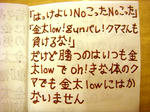 「はっけよいNoこったNoこった」
「金太low！gunバレ！クマさんも
負けるな！」
だけど勝つのはいつも金
太lowで oh！きな体のク
マでも 金太lowにはか
ないません